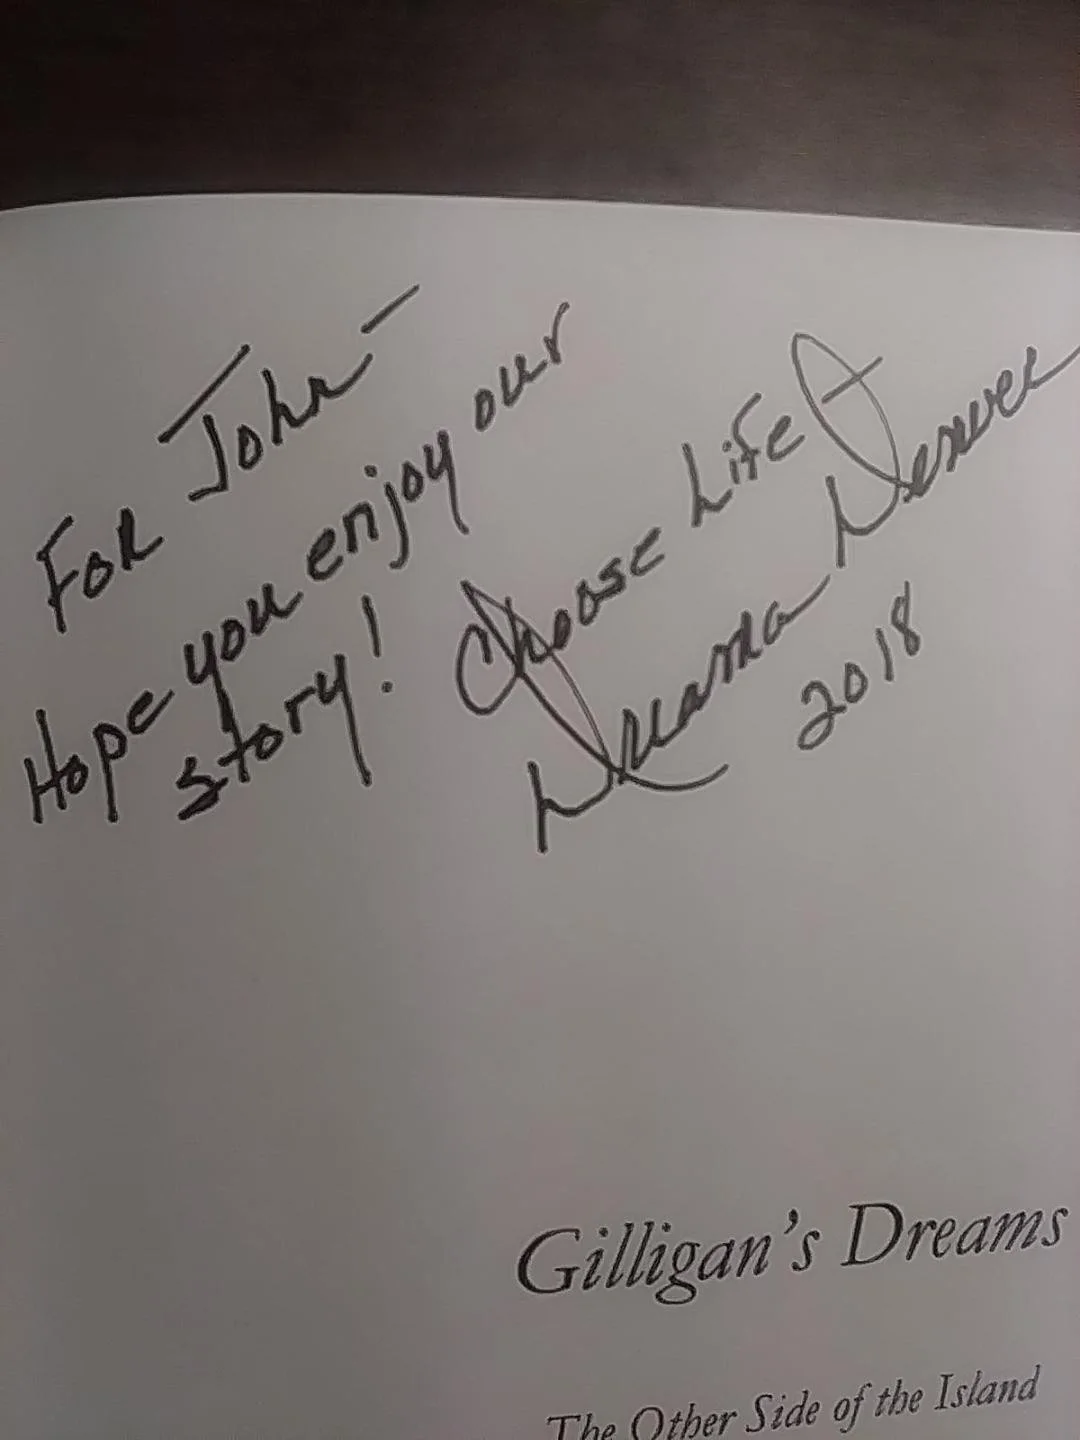 For John -
Hope you enjoy our
story!
Choose Life
Dreama Denver
2018
Gilligan's Dreams
The Other Side of the Island